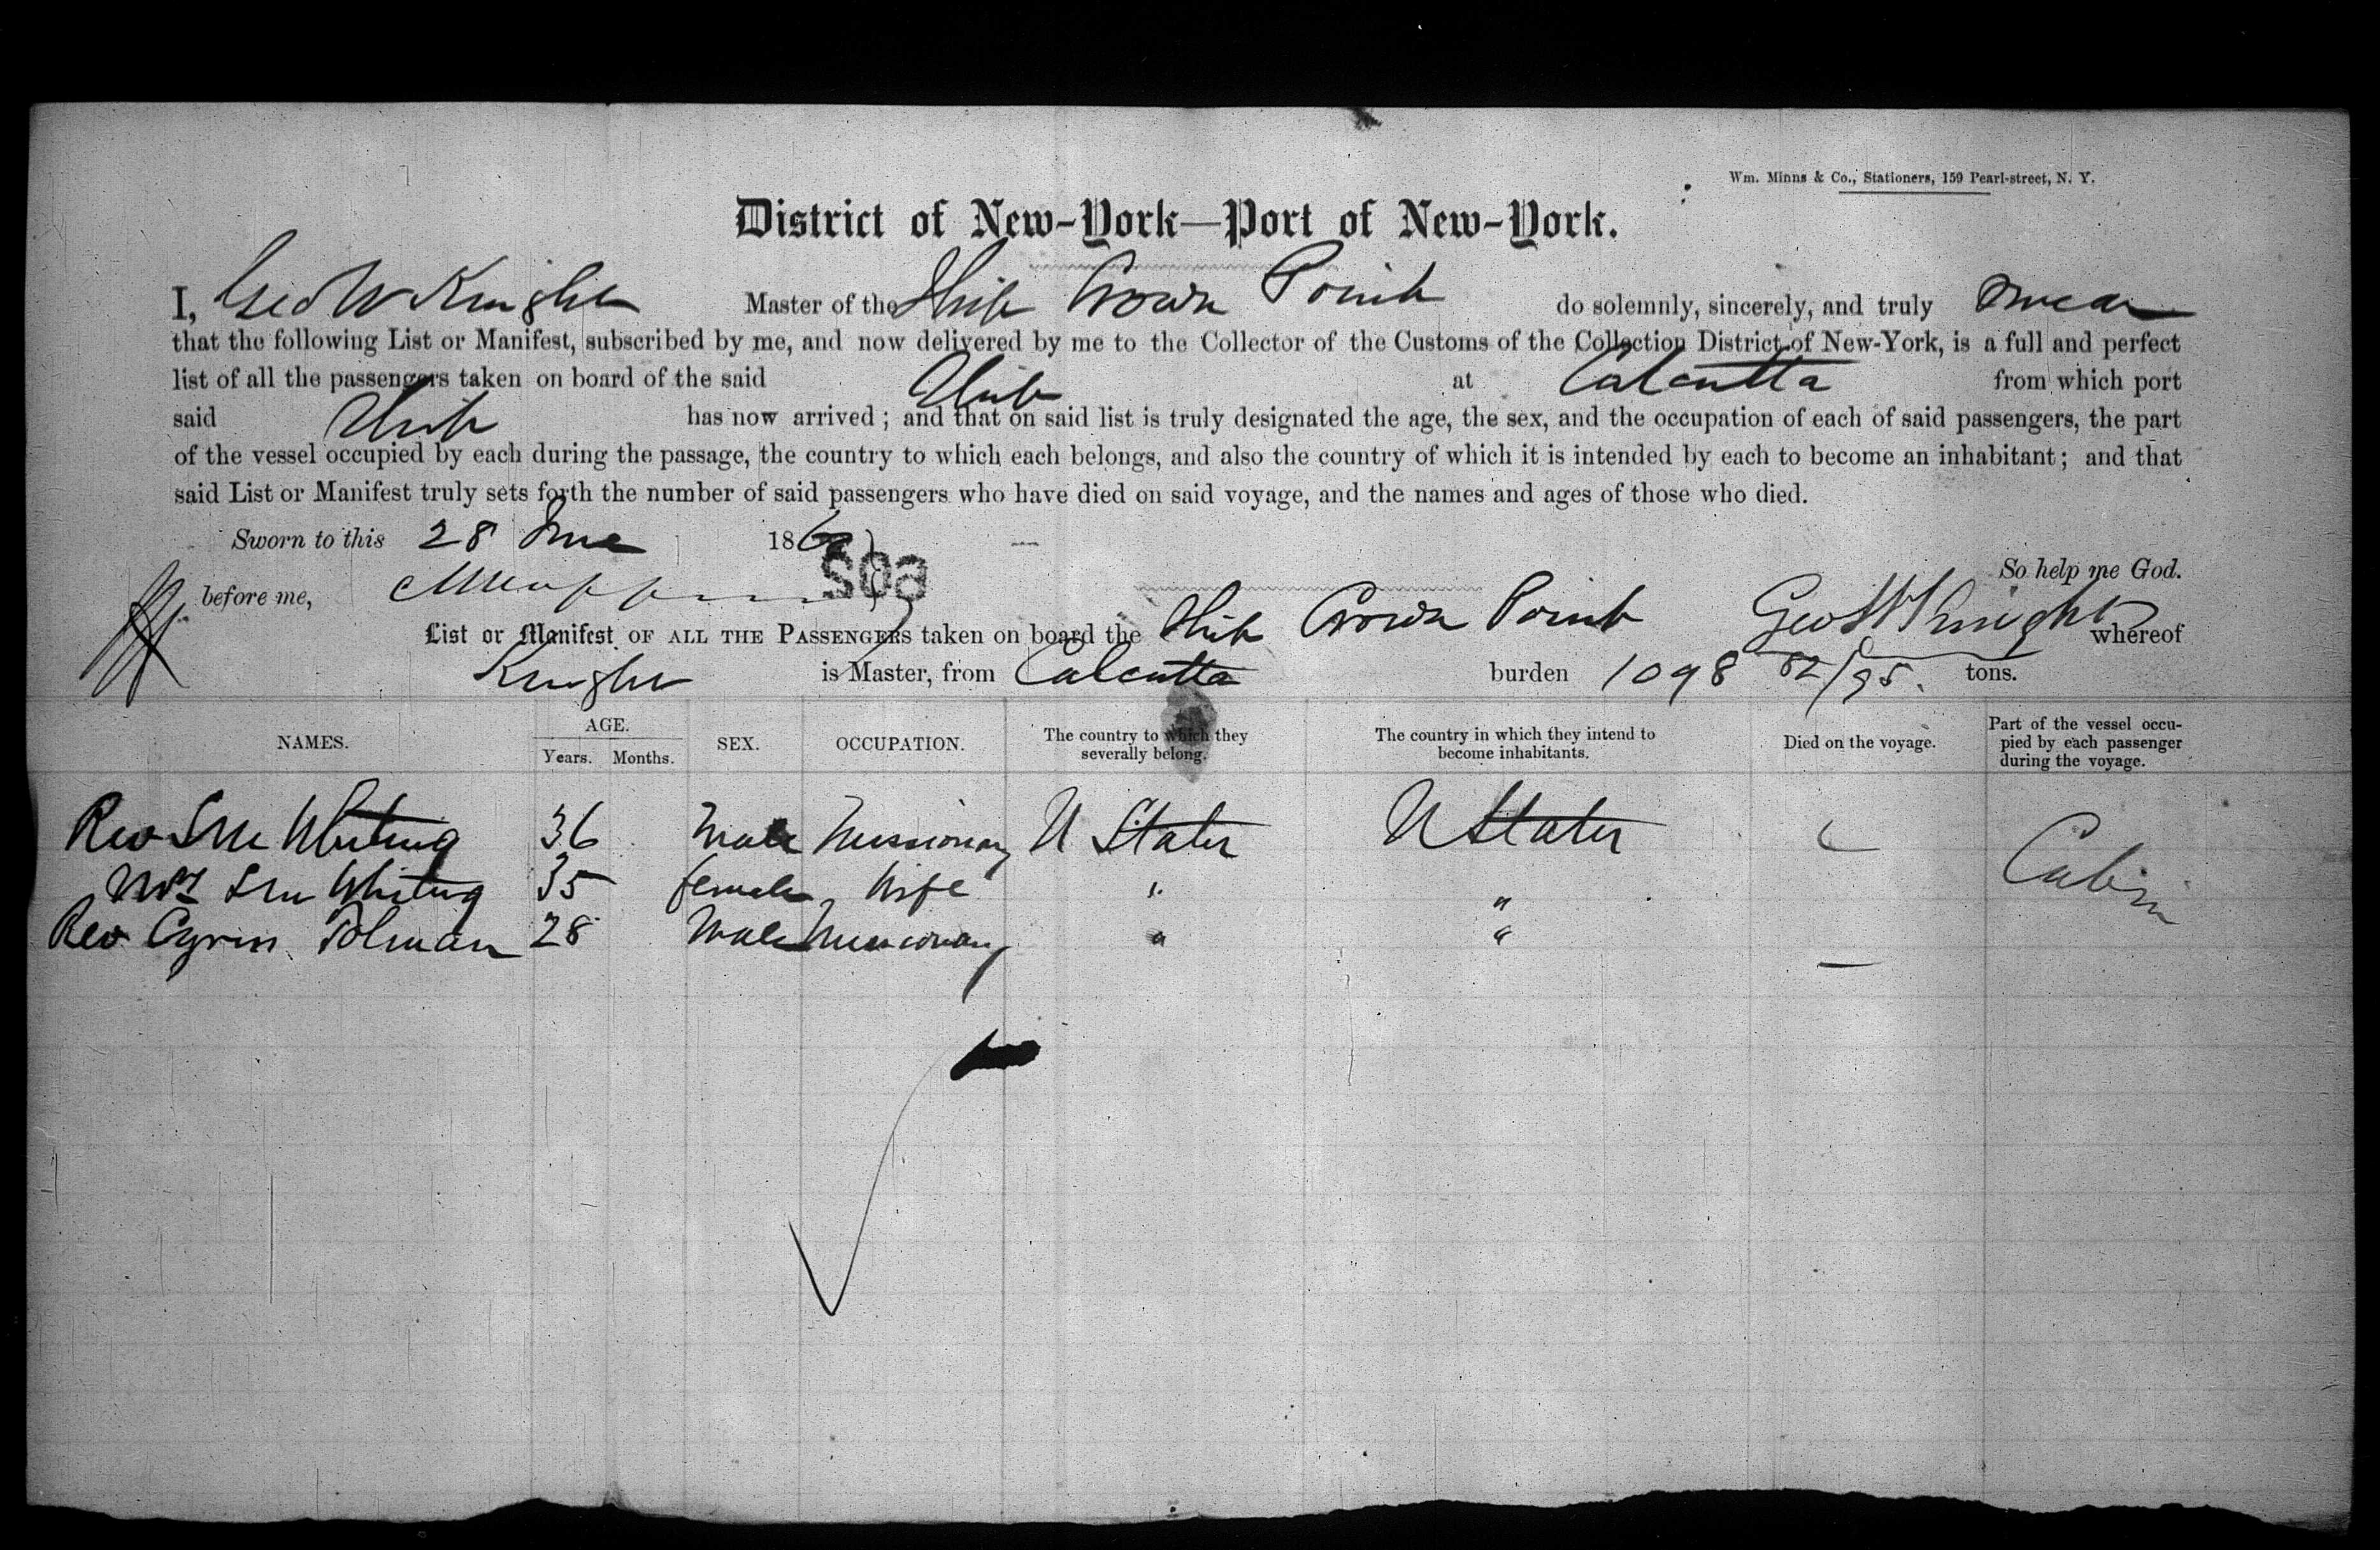 Wm. Minns & Co., Stationers, 159 Pearl-street, N. Y.
District of New-York—Port of New-York.
I, Geo W Knight Master of the Ship Crown Point do solemnly, sincerely, and truly swear
that the following List or Manifest, subscribed by me, and now delivered by me to the Collector of the Customs of the Collection District of New-York, is a full and perfect
list of all the passengers taken on board of the said Ship at Calcutta from which port
said Ship has now arrived; and that on said list is truly designated the age, the sex, and the occupation of each of said passengers, the part
of the vessel occupied by each during the passage, the country to which each belongs, and also the country of which it is intended by each to become an inhabitant; and that
said List or Manifest truly sets forth the number of said passengers who have died on said voyage, and the names and ages of those who died.
Sworn to this 28 June 186
So help me God.
before me, Geo W Knight
List or Manifest OF ALL THE PASSENGERS taken on board the Ship Crown Point whereof
Knight is Master, from Calcutta burden 1098 82/95 tons.
NAMES. AGE. Years. Months. SEX. OCCUPATION. The country to which they severally belong. The country in which they intend to become inhabitants. Died on the voyage. Part of the vessel occupied by each passenger during the voyage.
Rev S M Whiting 36 Male Missionary U States U States Cabin
Mrs S M Whiting 35 female Wife " "
Rev Cyrus Tolman 28 Male Missionary " "